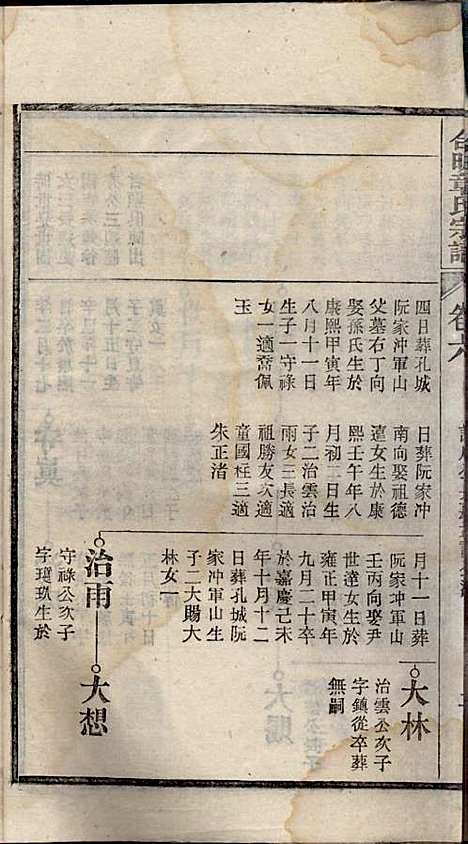 章氏宗譜
卷六
四日葬孔城
阮家沖軍山
父墓右丁向
娶孫氏生於
康熙甲寅年
八月十一日
生子一守祿
女一適喬佩
玉
日葬阮家沖
南向娶祖德
達女生於康
熙壬午年八
月初二日生
子二治雲治
雨女三長適
祖勝友次適
童國柱三適
朱正渚
月十一日葬
阮家冲軍山
壬丙向娶尹
世達女生於
雍正甲寅年
九月二十卒
於嘉慶己未
年十月十二
日葬孔城阮
家冲軍山生
子二大賜大
林女一
大林
治雲公次子
字鎮從卒葬
無嗣
治雨
守祿公次子
生於
大想